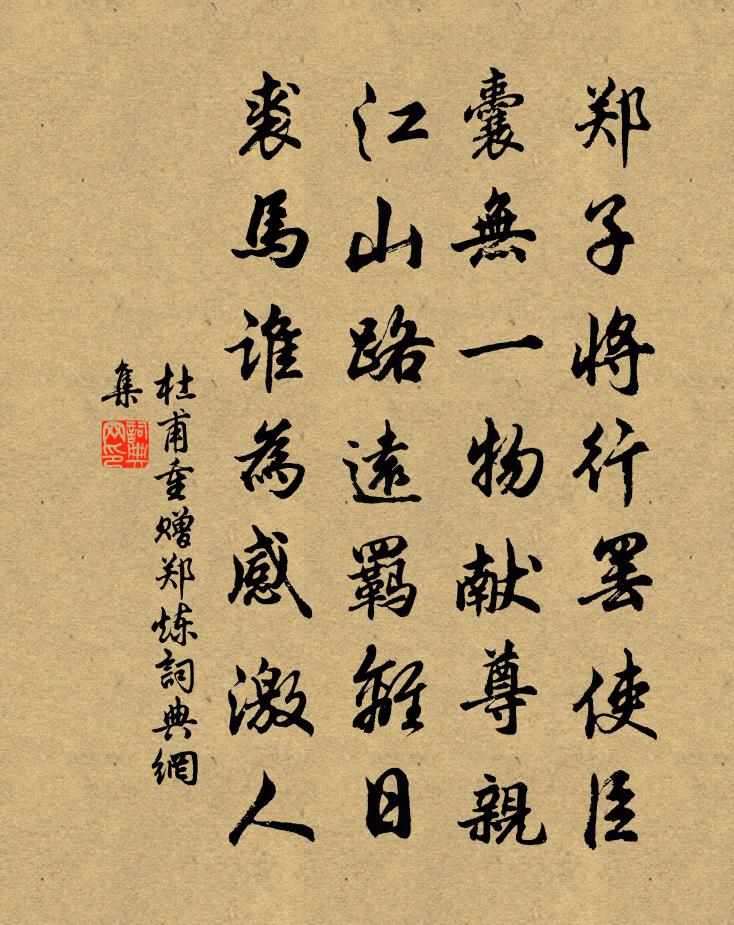 郑子将行罢使臣
囊無一物献尊親
江山路遠羁離日
裘馬谁為感激人
杜甫重赠郑炼詞典網
集
詞典
网印